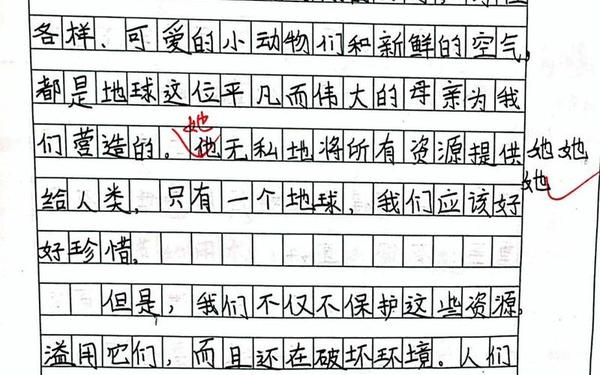 各样、可爱的小动物们和新鲜的空气,
都是地球这位平凡而伟大的母亲为我
她
们营造的。他无私地将所有资源提供 她她
她
给人类,只有一个地球,我们应该好
好珍惜。
但是,我们不仅不保护这些资源,
滥用它们,而且还在破坏环境。人们